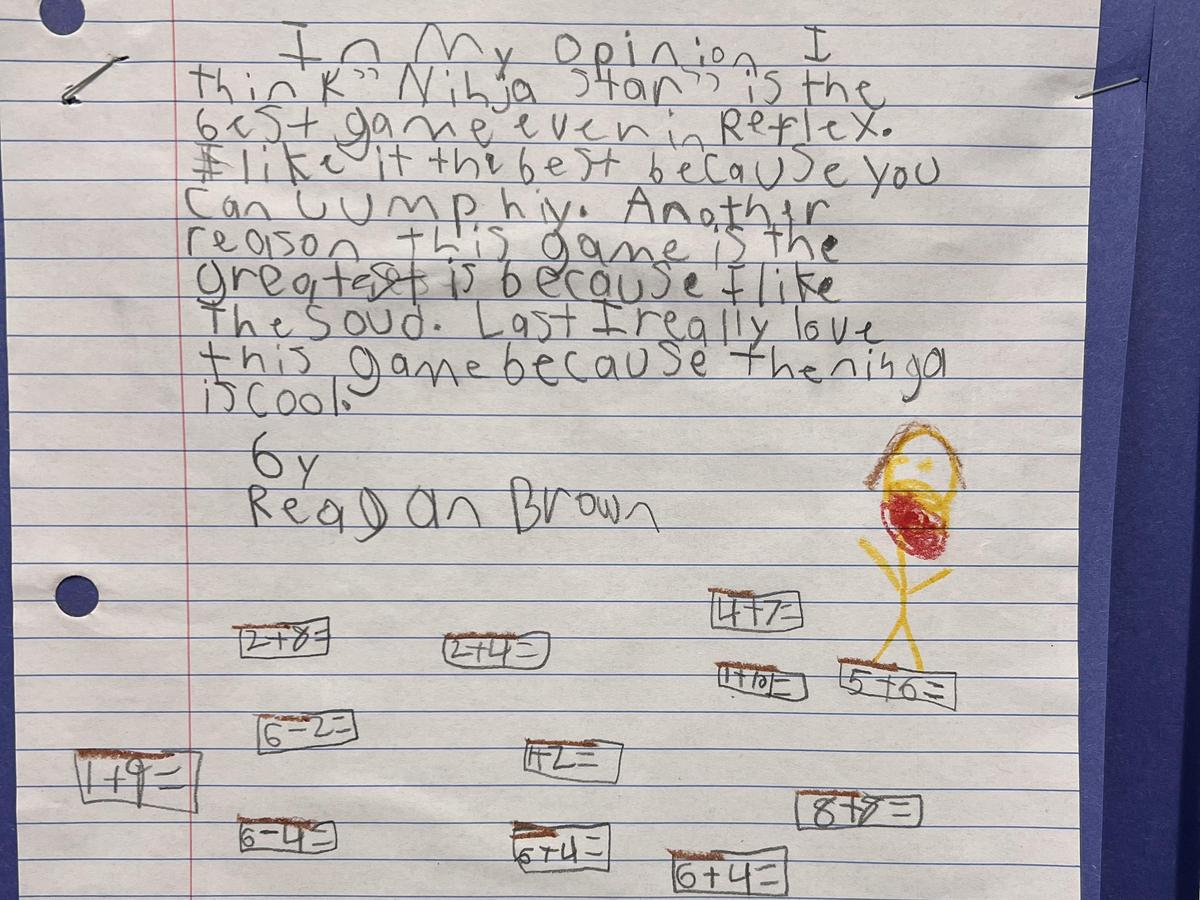 In My Opinion I
think" Ninja Star" is the
best game ever in Reflex.
I like it the best because you
Can Jump hiy. Another
reason this game is the
greatest is because I like
The Soud. Last I really love
this game because the ninga
is cool.
by
Reagan Brown
4+7=
2+8=
2+4=
1+10=
5+6=
6-2=
1+2=
1+9=
8+8=
6-4=
6+4=
6+4=